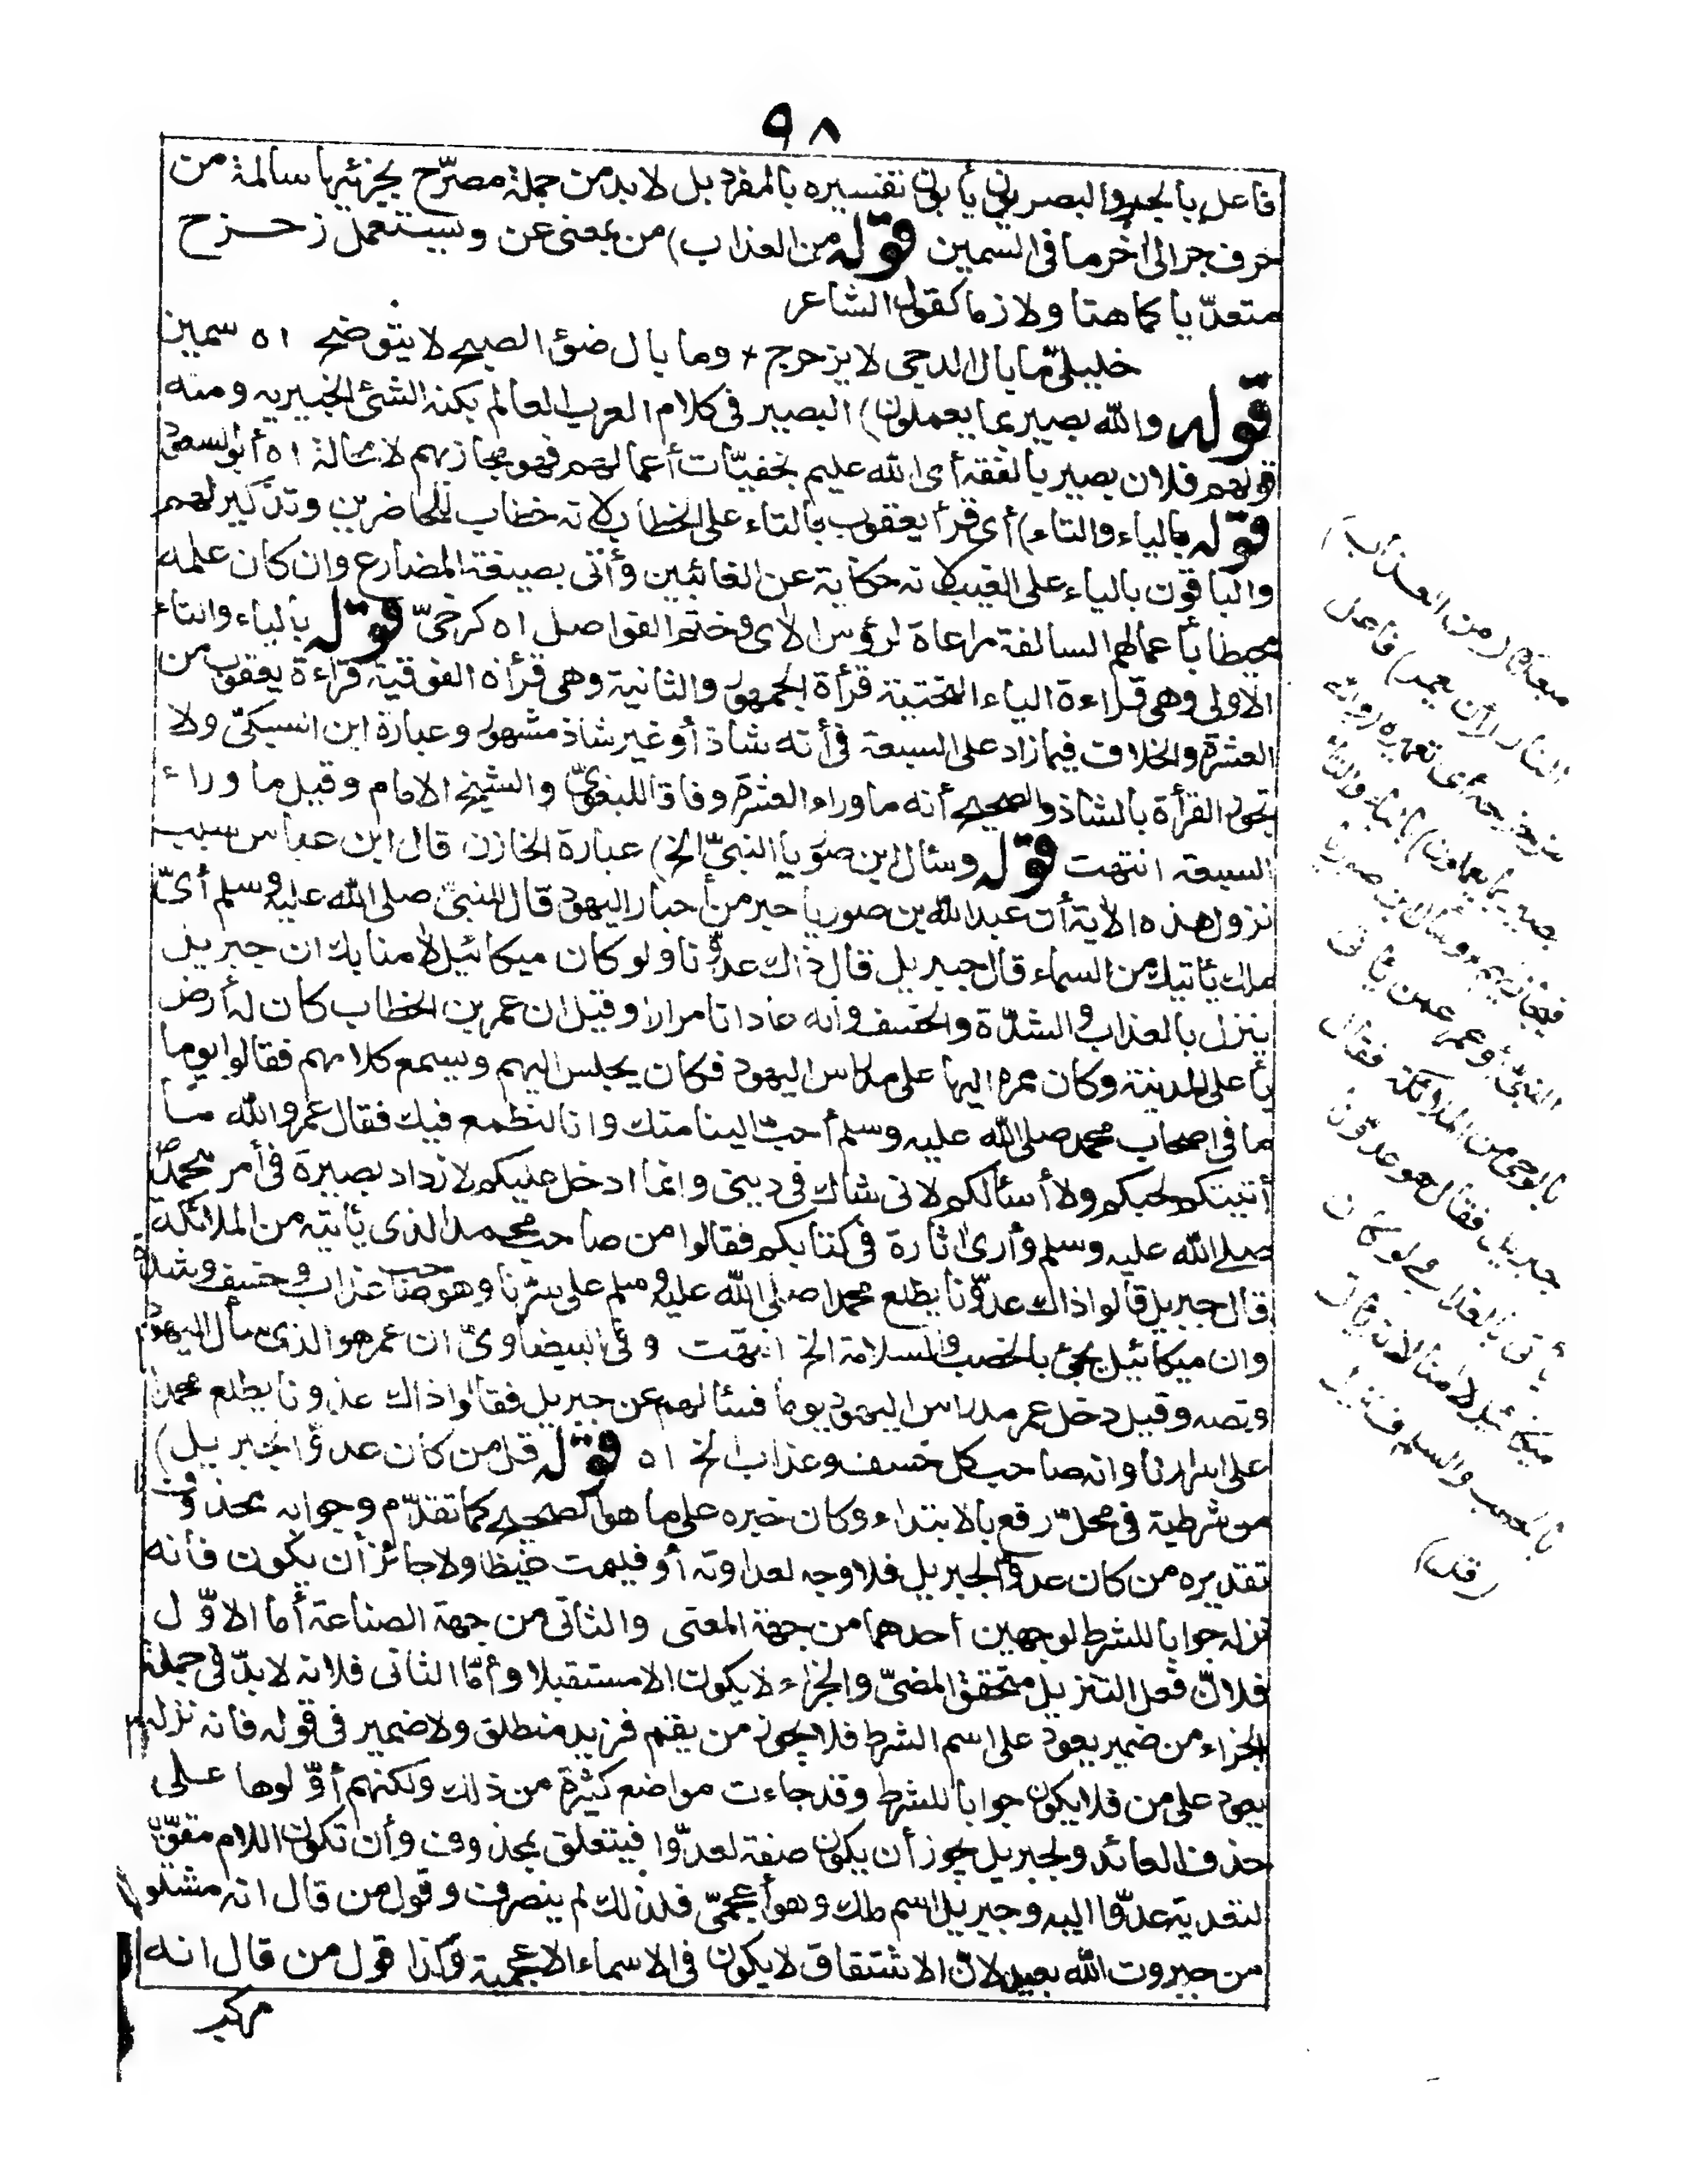 ٩٨
فاعل بالجر والبصريون يأبون تفسيره بالمفرد بل لا بد من جملة مصرّح بجزئيها سالمة من
حرف جر الى اخر ما فى السمين قوله من العذاب) من بمعنى عن ويستعمل زحزح
متعدّيا كما هنا ولازما كقول الشاعر
خليليّ ما بال الدجى لا يزحزح * وما بال ضوء الصبح لا يتوضح اه سمين
قوله والله بصير بما يعملون) البصير فى كلام العرب العالم بكنه الشئ الخبير به ومنه
قولهم فلان بصير بالفقه أى الله عليم بخفيّات أعمالهم فهو مجازيهم لا محالة اه أبو السعود
قوله بالياء والتاء) أى قرأ يعقوب بالتاء على الخطاب لانه خطاب للحاضرين وتذكير لهم
والباقون بالياء على الغيب لانه حكاية عن الغائبين وأتى بصيغة المضارع وان كان علمه
محيطا بأعمالهم السالفة مراعاة لرؤس الاى وختم الفواصل اه كرخىّ قوله بالياء والتاء
الاولى وهى قراءة الياء التحتية قرأة الجمهور والثانية وهى قرأة الفوقية قراءة يعقوب من
العشرة والخلاف فيما زاد على السبعة فى أنه شاذ أو غير شاذ مشهور وعبارة ابن السبكىّ ولا
تجوز القرأة بالشاذ والصحيح أنه ما وراء العشرة وفاقا للبغوىّ والشيخ الامام وقيل ما وراء
السبعة انتهت قوله وسئال ابن صوريا النبىّ الخ) عبارة الخازن قال ابن عباس سبب
نزول هذه الاية أن عبد الله بن صوريا حبر من أحبار اليهود قال للنبىّ صلى الله عليه وسلم أىّ
ملك يأتيك من السماء قال جبريل قال ذاك عدوّنا ولو كان ميكائيل لأمنا بك ان جبريل
ينزل بالعذاب والشدّة والخسف وانه عادانا مرارا وقيل ان عمر بن الخطاب كان له أرض
بأعلى المدينة وكان ممره اليها على مدراس اليهود فكان يجلس اليهم ويسمع كلامهم فقالوا يوما
ما فى اصحاب محمد صلى الله عليه وسلم أحبّ الينا منك وانا لنطمع فيك فقال عمر والله ما
أتيتكم لحبكم ولا أسألكم لانى شاك فى دينى وانما ادخل عليكم لازداد بصيرة فى أمر محمد
صلى الله عليه وسلم وأرى اثارة فى كتابكم فقالوا من صاحب محمد الذى يأتيه من الملائكة
قال جبريل قالوا ذاك عدوّنا يطلع محمدا صلى الله عليه وسلم على سرّنا وهو صاحب عذاب وخسف وشدة
وان ميكائيل يجئ بالخصب والسلامة الخ انتهت وفى البيضاوىّ ان عمر هو الذى سأل اليهود
ونصه وقيل دخل عمر مدراس اليهود يوما فسئالهم عن جبريل فقالوا ذاك عدونا يطلع محمدا
على اسرارنا وانه صاحب كل خسف وعذاب الخ اه قوله قل من كان عدوّا لجبريل)
من شرطية فى محلّ رفع بالابتداء وكان خبره على ما هو الصحيح كما تقدّم وجوابه محذوف
تقديره من كان عدوّا لجبريل فلا وجه لعداوته أو فليمت غيظا ولا جائز أن يكون فأنه
نزله جوابا للشرط لوجهين أحدهما من جهة المعنى والثانى من جهة الصناعة أما الاوّل
فلأنّ فعل التنزيل متحقق المضىّ والجزاء لا يكون الا مستقبلا وأمّا الثانى فلانه لا بدّ فى جملة
الجزاء من ضمير يعود على اسم الشرط فلا يجوز من يقم فزيد منطلق ولا ضمير فى قوله فانه نزله
يعود على من فلا يكون جوابا للشرط وقد جاءت مواضع كثيرة من ذلك ولكنهم أوّلوها على
حذف العائد ولجبريل يجوز أن يكون صفة لعدوّا فيتعلق بمحذوف وأن تكون اللام مقوّية
لتعدية عدوّا اليه وجبريل اسم ملك وهو أعجمىّ فلذلك لم ينصرف وقول من قال انه مشتق
من جبروت الله بعيد لانّ الاشتقاق لا يكون فى الاسماء الاعجمية وكذا قول من قال انه
مركب
مبعده (من العذاب)
النار (أن يعمر) فاعل
مزحزحه أى تعميره (والله
بصير بما يعملون) بالياء والتاء
فيجازيهم وسئال ابن صوريا
النبىّ أو عمر عمن يأتى
بالوحى من الملائكة فقال
جبريل فقال هو عدوّنا
يأتى بالعذاب ولو كان
ميكائيل لامنا لانه يأتى
بالخصب والسلم فنزل
(قل)